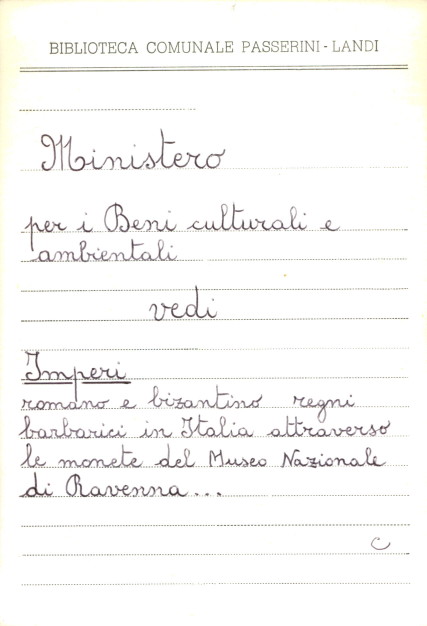 BIBLIOTECA COMUNALE PASSERINI-LANDI
Ministero
per i Beni culturali e
ambientali
vedi
Imperi
romano e bizantino regni
barbarici in Italia attraverso
le monete del Museo Nazionale
di Ravenna...
C